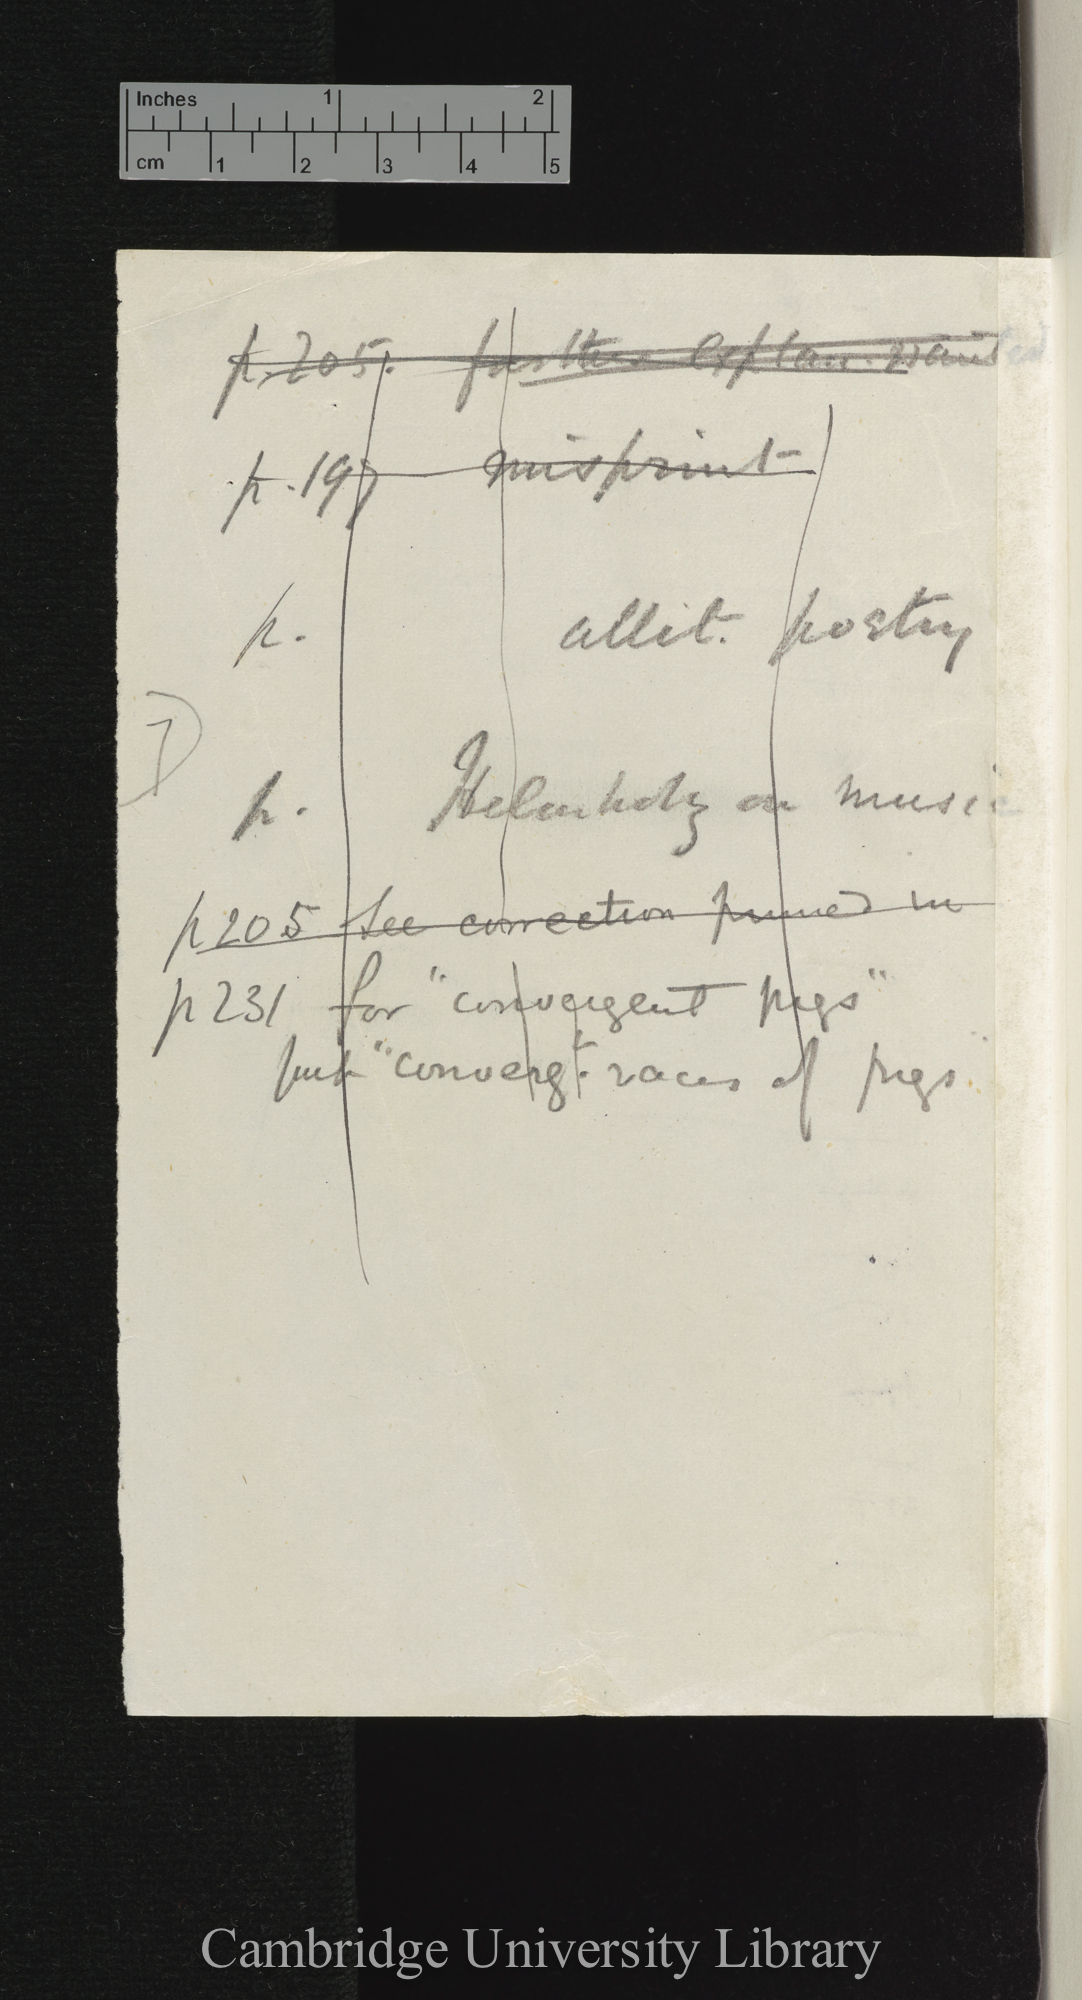 Inches 1 2
cm 1 2 3 4 5
p. 205. further explan. wanted
p. 197 misprint
p. allit. poetry
p. Helmholtz on music
p 205 See correction pinned in
p 231 for "convergent pigs"
put "converg.t races of pigs"
Cambridge University Library